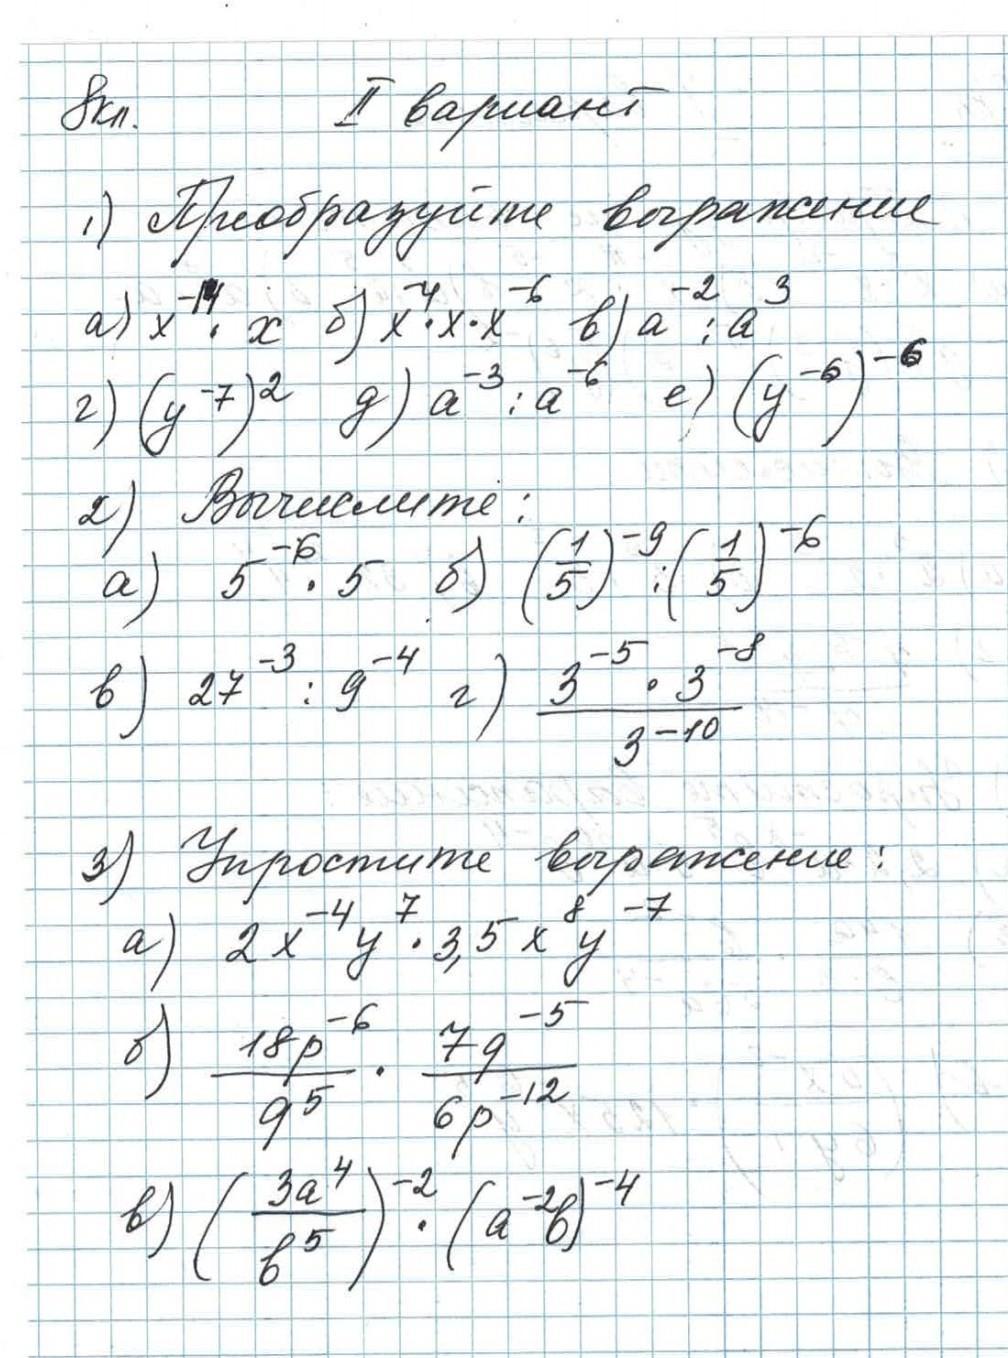 8кл. II вариант
1) Преобразуйте выражение
а) x⁻¹⁴ · x б) x⁻⁴ · x · x⁻⁶ в) a⁻² : a³
г) (y⁻⁷)² д) a⁻³ : a⁻⁶ е) (y⁻⁶)⁻⁶
2) Вычислите:
а) 5⁻⁶ · 5 б) (1/5)⁻⁹ : (1/5)⁻⁶
в) 27⁻³ : 9⁻⁴ г) (3⁻⁵ · 3⁻⁸)/3⁻¹⁰
3) Упростите выражение:
а) 2x⁻⁴y⁷ · 3,5x⁸y⁻⁷
б) 18p⁻⁶/q⁵ · 7q⁻⁵/6p⁻¹²
в) (3a⁴/b⁵)⁻² · (a⁻²b)⁻⁴